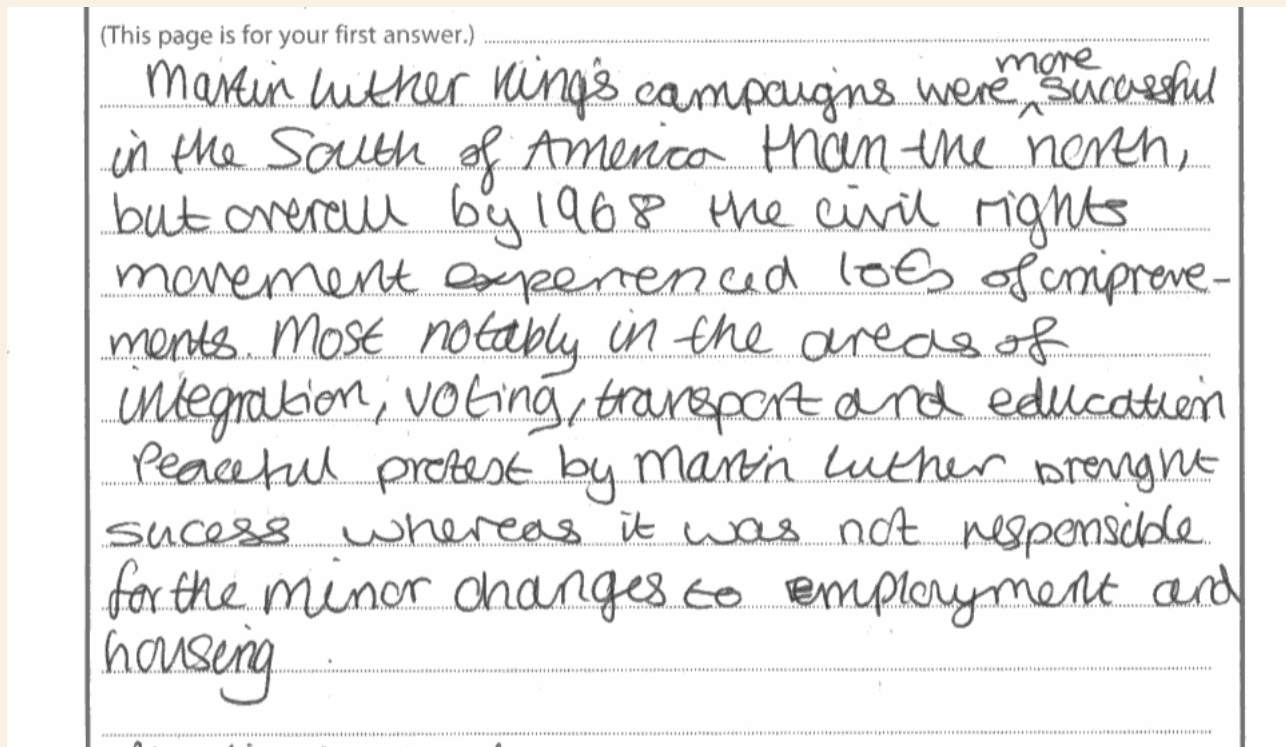 (This page is for your first answer.)
Martin luther King's campaigns were ^more sucessful
in the South of America than the north,
but overall by 1968 the civil rights
movement experienced lots of improve-
ments. Most notably in the areas of
integration, voting, transport and education
Peaceful protest by Martin luther brought
sucess whereas it was not responsible
for the minor changes to employment and
housing